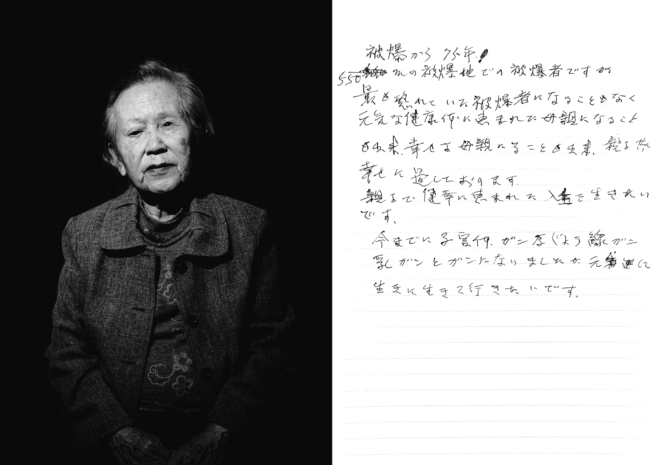 被爆から 75年!
550mの被爆地での被爆者ですが
最も恐れていた被爆者になることもなく
元気な健康体に恵まれた母親になること
も出来、幸せな母親になることも出来、
幸せに過しております。
親子で健幸に恵まれた人生を生きたい
です。
今までに子宮体ガン 甲じょう線ガン
乳ガンとガンになりましたが元気に
生き生きて行きたいです。